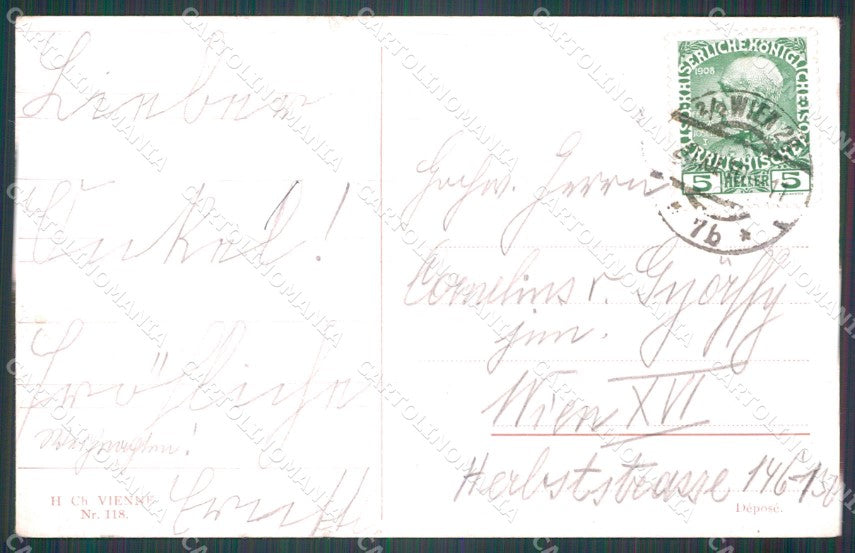 Lieber
Onkel!
Fröhliche
Weihnachten!
Ernst
H Ch VIENNE
Nr. 118.
KAISERLICHE KÖNIGLICHE ÖSTERREICHISCHE
1908
5 HELLER 5
WIEN
7b
Hochw. Herrn
Cornelius v. Györffy
jun.
Wien XVI
Herbststrasse 146-
Déposé.
CARTOLINOMANIA